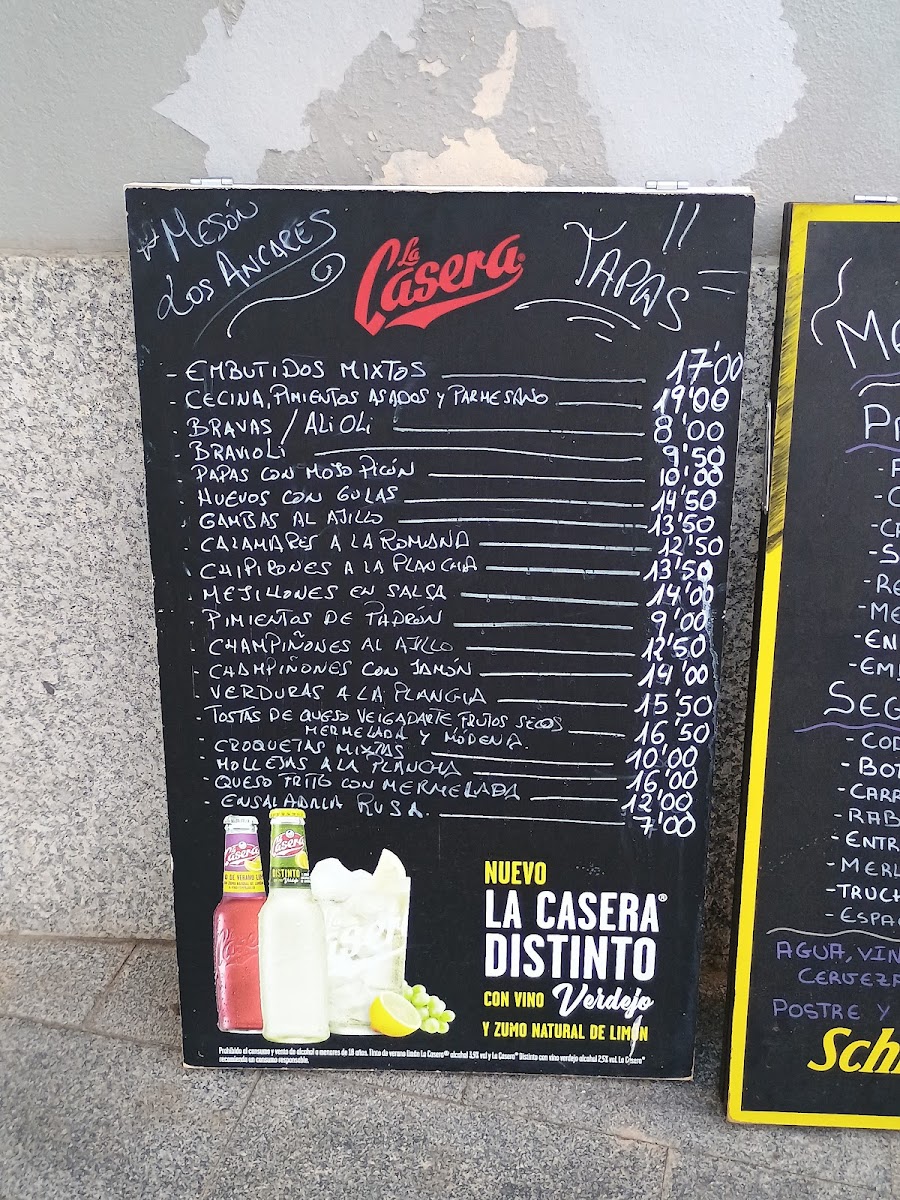 #Mesón
Los Ancares
La Casera
Tapas
- Embutidos Mixtos 17'00
- Cecina, Pimientos Asados y Parmesano 19'00
- Bravas / Ali Oli 8'00
- Bravioli 9'50
- Papas con Mojo Picón 10'00
- Huevos con Gulas 14'50
- Gambas al Ajillo 13'50
- Calamares a la Romana 12'50
- Chipirones a la Plancha 13'50
- Mejillones en Salsa 14'00
- Pimientos de Padrón 9'00
- Champiñones al Ajillo 12'50
- Champiñones con Jamón 14'00
- Verduras a la Plancia 15'50
- Tostas de Queso Veigadarte, Frutos Secos
Mermelada y Módena. 16'50
- Croquetas Mixtas 10'00
- Mollejas a la Plancha 16'00
- Queso Frito con Mermelada 12'00
- Ensaladilla Rusa. 7'00
La Casera
La Casera
DISTINTO
Verdejo
NUEVO
LA CASERA®
DISTINTO
CON VINO Verdejo
Y ZUMO NATURAL DE LIMÓN
Prohibido el consumo y venta de alcohol a menores de 18 años. Tinto de verano limón La Casera® alcohol 3,9% vol y La Casera® Distinto con vino verdejo alcohol 2,5% vol. La Casera®
recomienda un consumo responsable.
AGUA, VIN
CERVEZA
POSTRE Y
Sch